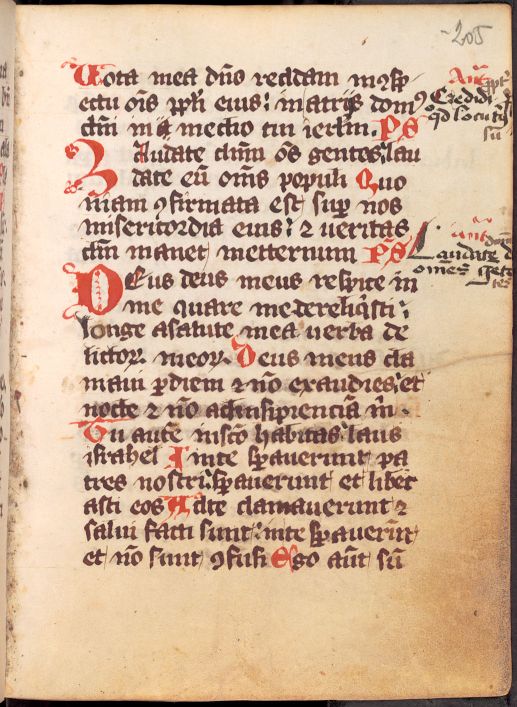 205
Vota mea dño reddam in ꝯsp
ectu oĩs ppłi eius: in atrijs dom
dñi in medio tui ierłm. Ps
Laudate dñm oẽs gentes: lau
date eũ oẽs populi Quo
niam ꝯfirmata est sup nos
misericordia eius: ⁊ veritas
dñi manet in etternum Ps
Deus deus meus respice in
me quare me dereliqͥsti:
longe a salute mea verba de
lictoꝝ meoꝝ. Deus meus cla
mabi p diem ⁊ nõ exaudies: et
nocte ⁊ nõ ad insipienciã m̃.
Tu autẽ in sc̃o habitas: laus
israhel In te spauerunt pa
tres nostri: spauerunt et liber
asti eos Ad te clamauerunt ⁊
salui facti sunt: in te spauerũt
et nõ sunt ꝯfusi Ego aũt sũ
An̄
Credidi ꝓpt
qd locutꝰ
sũ
Ant
Laudate dom
omes gẽte
tes